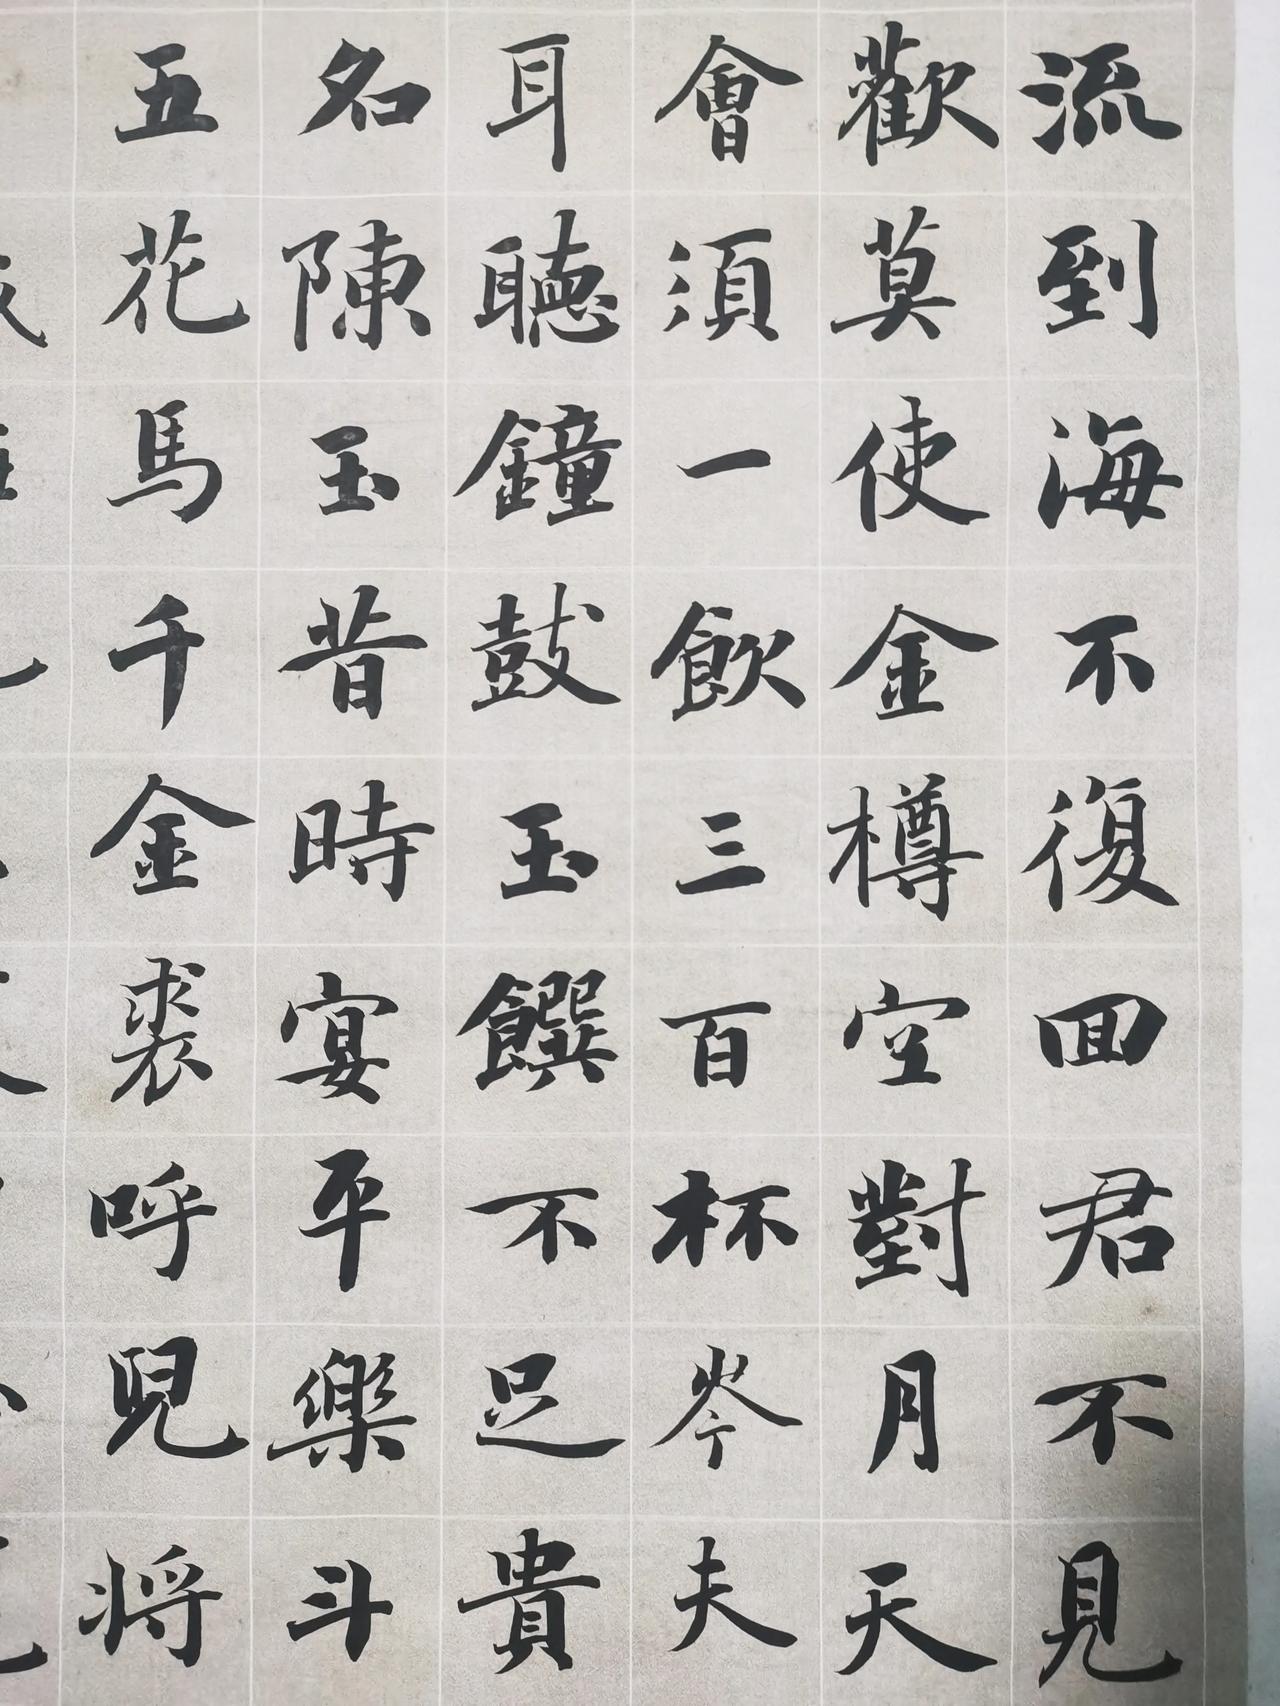 流到海不復回君不見
歡莫使金樽空對月天
會須一飲三百杯岑夫
耳聽鐘鼓玉饌不足貴
名陳玉昔時宴平樂斗
五花馬千金裘呼兒將